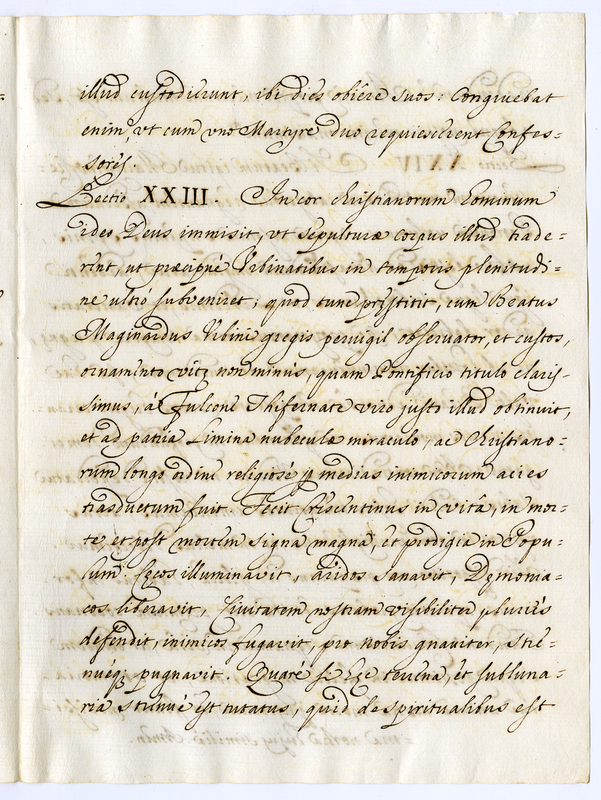 illud custodierunt, ibi dies obiêre suos: Congruebat
enim, vt cum vno Martyre duo requiescerent Confes=
sores.
Lectio XXIII. In cor christianorum hominum
ideo Deus immisit, vt sepulturæ corpus illud trade=
rent, ut præsipué Vrbinatibus in temporis plenitudi=
ne ultró subveniret; quod tunc prestitit, cum Beatus
Maginardus Vrbini gregis pervigil observator, et custos,
ornamento vitę non minùs, quam Pontificio titulo claris=
simus, á Fulcone Thifernate viro justo illud obtinuit,
et ad patria Limina nubeculæ miraculo, ac christiano=
rum longo ordine religiosé p medias inimicorum acies
trasductum fuit. Fecit Crescentinus in vitâ, in mor=
te, et post mortem signa magna, et prodigia in Popu=
lum. Cęcos illuminavit, aridos sanavit, Dęmonia=
cos liberavit, Civitatem nostram visibiliter pluriés
defendit, inimicos fugavit, pro nobis gnaviter, stre=
nuéq; pugnavit. Quaré si Ege terrena, et subluna=
ria strenué est tutatus, quid de spiritualibus est